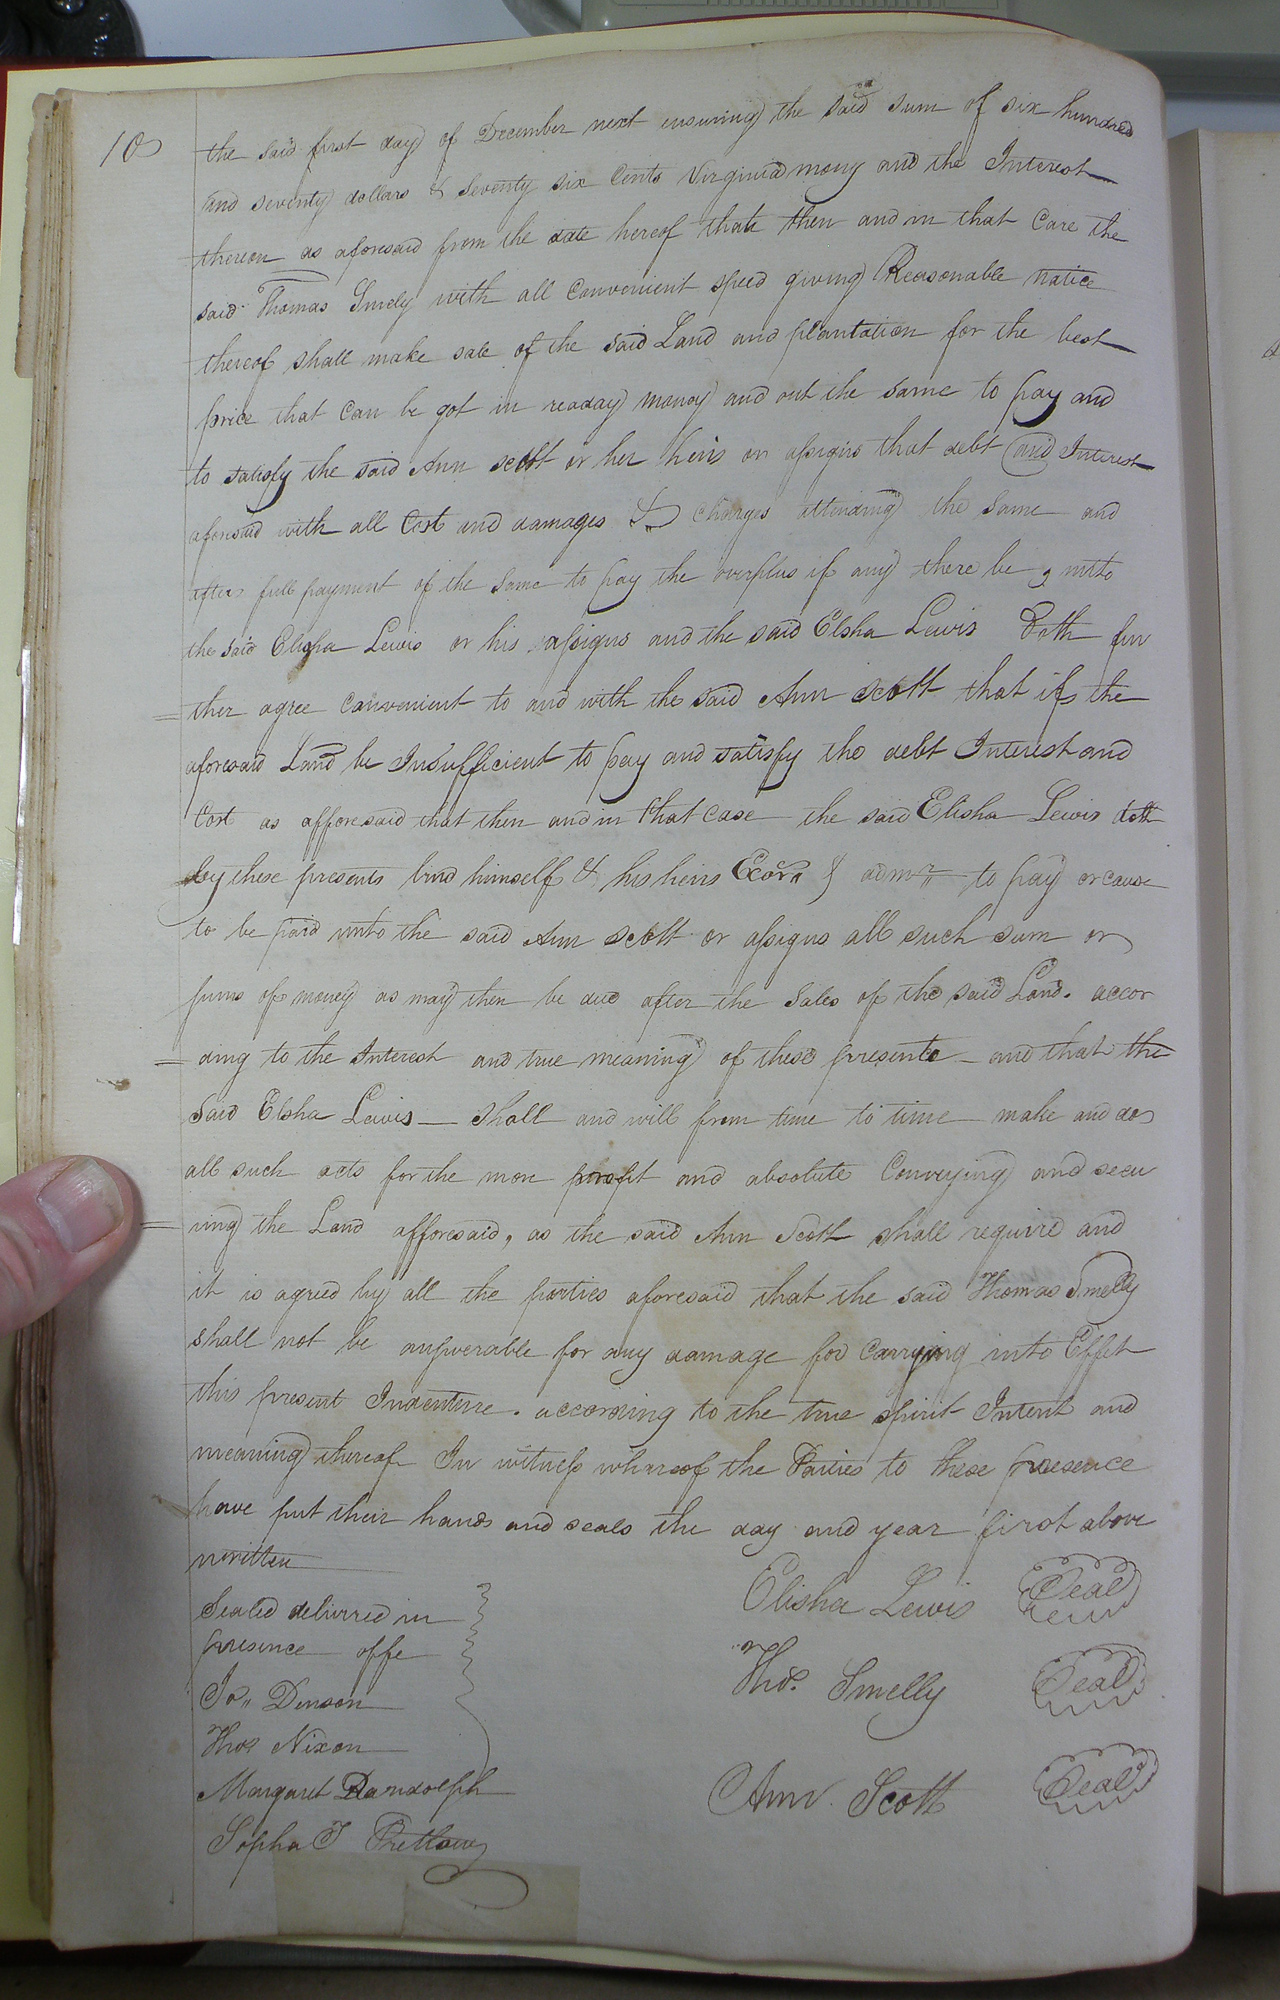 10
the said first day of December next ensuring the said sum of six hundred
and seventy dollars & seventy six Cents Virginia mony and the Interest
thereon as aforesaid from the date hereof thate then and in that Care the
said Thomas Smely with all convenient speed giving Reasonable notice
thereof shall make sale of the said Land and plantation for the best
price that can be got in readay money and out the same to pay and
to satisfy the said Ann scott or her heirs or assigns that debt and Interest
aforesaid with all Cost and damages & charges attending the same and
after full payment of the same to pay the overplus if any there be unto
the said Elisha Lewis or his assigns and the said Elsha Lewis Doth fur
= ther agree convenient to and with the said Ann scott that if the
aforesaid Land be Insufficient to pay and satisfy the debt Interest and
Cost as afforesaid that then and in that case the said Elisha Lewis doth
by these presents bind himself & his heirs Exors & adm to pay or cause
to be paid unto the said Ann scott or assigns all such sum or
sums of money as may then be due after the Sales of the said Land. accor
= ding to the Interest and true meaning of these presents and that the
said Elsha Lewis shall and will from time to time make and do
all such acts for the more and absolute Conveying and secu
= ring the Land afforesaid, as the said Ann Scott shall require and
it is agreed by all the parties aforesaid that the said Thomas Smelly
shall not be answerable for any damage for carrying into Effet
this present Indenture. according to the true spirit Intent and
meaning thereof In witness whareof the Parties to these presence
have put their hands and seals the day and year first above
written
Elisha Lewis Seal
Sealed deliverred in
presence offe
Thos. Smelly Seal
Jo,, Denson
Thos Nixon
Margaret Randolph
Ann Scott Seal
Sopha T Pretlow